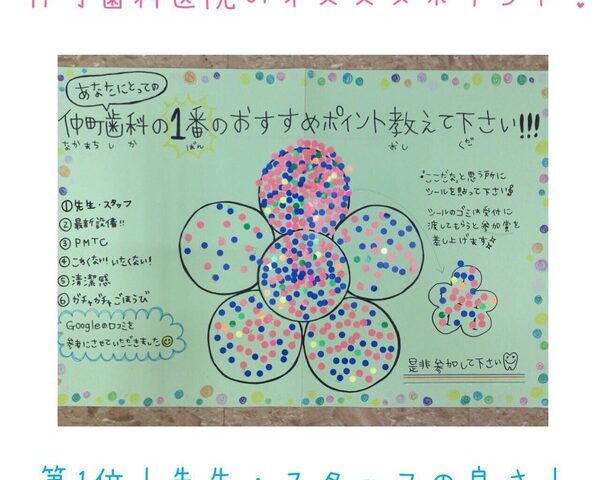 仲町歯科医院のオススメポイント!
あなたにとっての
仲町歯科の1番のおすすめポイント教えて下さい!!!
なかまち しか ばん おし くだ
①先生・スタッフ
②最新設備!!
③PMTC
④こわくない!いたくない!
⑤清潔感
⑥ガチャガチャごほうび
Googleの口コミを
参考にさせていただきました
"ここだな"と思う所に
シールを貼って下さい
シールのゴミは受付に
渡してもらうと参加賞を
差し上げます
是非参加して下さい
第1位!先生・スタッフの良さ!